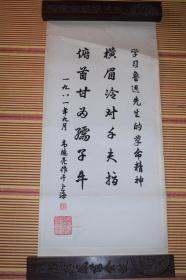 学习鲁迅先生的革命精神
横眉冷对千夫指
俯首甘为孺子牛
一九八一年九月
韦德亮作于上海